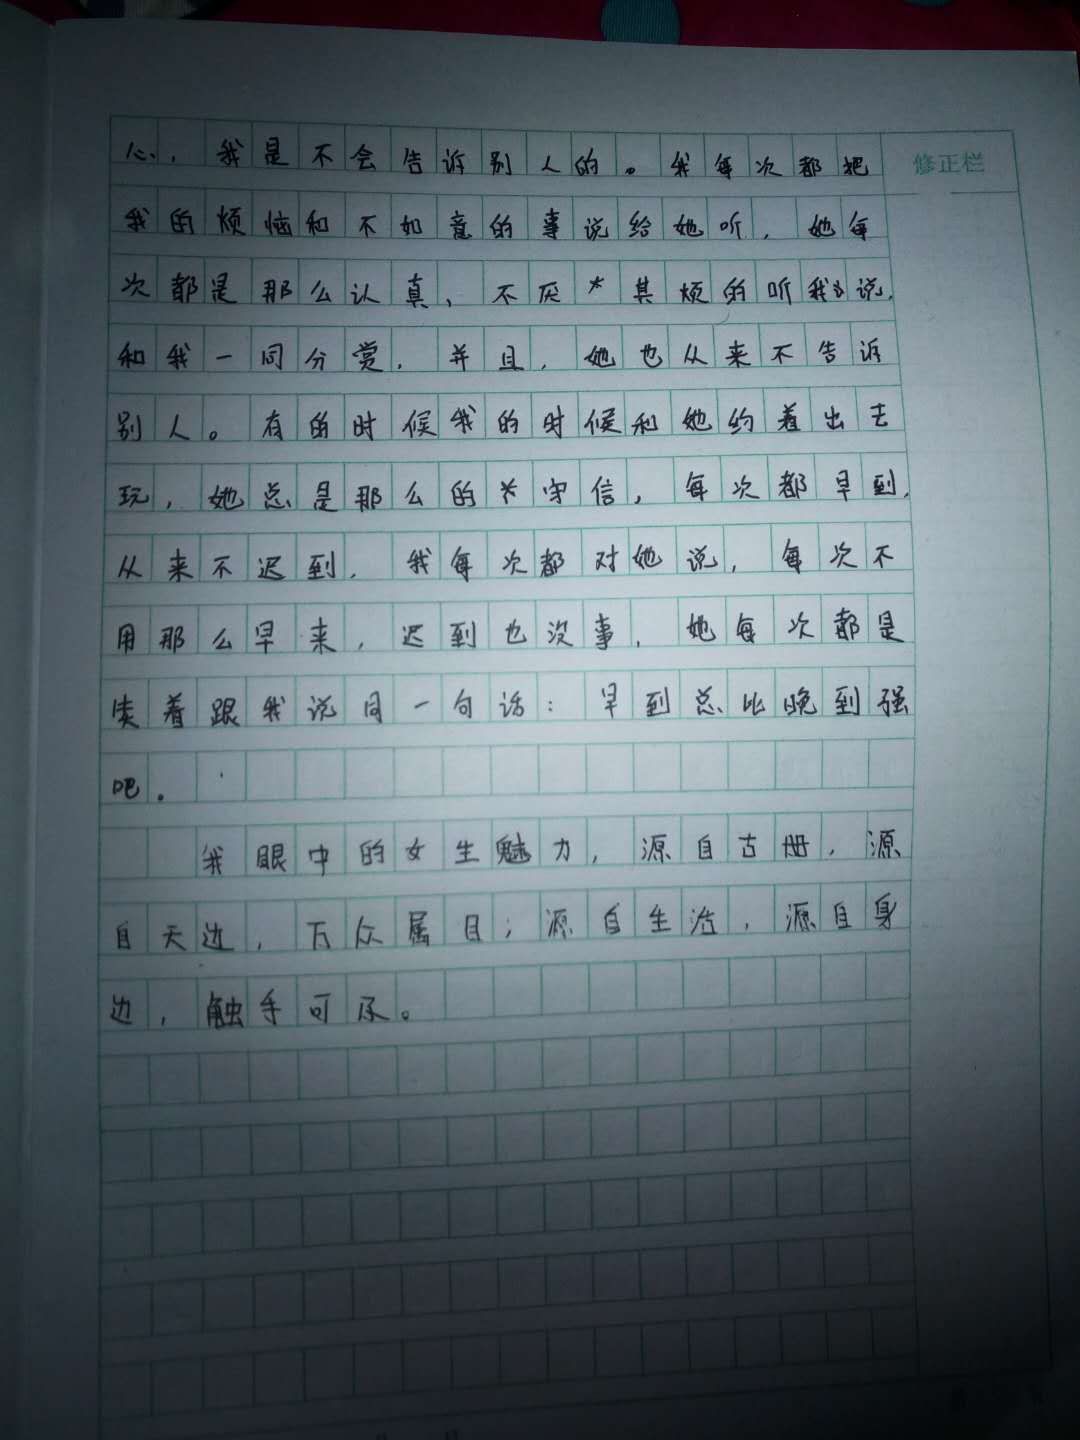 心，我是不会告诉别人的。我每次都把
修正栏
我的烦恼和不如意的事说给她听，她每
次都是那么认真、不厌其烦的听我说，
和我一同分赏，并且，她也从来不告诉
别人。有的时候我的时候和她约着出去
玩，她总是那么的守信，每次都早到，
从来不迟到，我每次都对她说，每次不
用那么早来，迟到也没事，她每次都是
笑着跟我说同一句话：早到总比晚到强
吧。
我眼中的女生魅力，源自古册，源
自天边，万众属目；源自生活，源自身
边，触手可及。